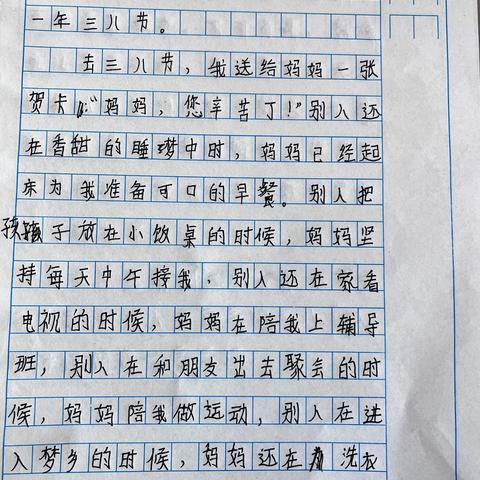 一年三八节。
去三八节，我送给妈妈一张
贺卡："妈妈，您辛苦了！"别人还
在香甜的睡梦中时，妈妈已经起
床为我准备可口的早餐。别人把
孩子放在小饭桌的时候，妈妈坚
持每天中午接我，别人还在家看
电视的时候，妈妈在陪我上辅导
班，别人在和朋友出去聚会的时
候，妈妈陪我做运动，别人在进
入梦乡的时候，妈妈还在洗衣